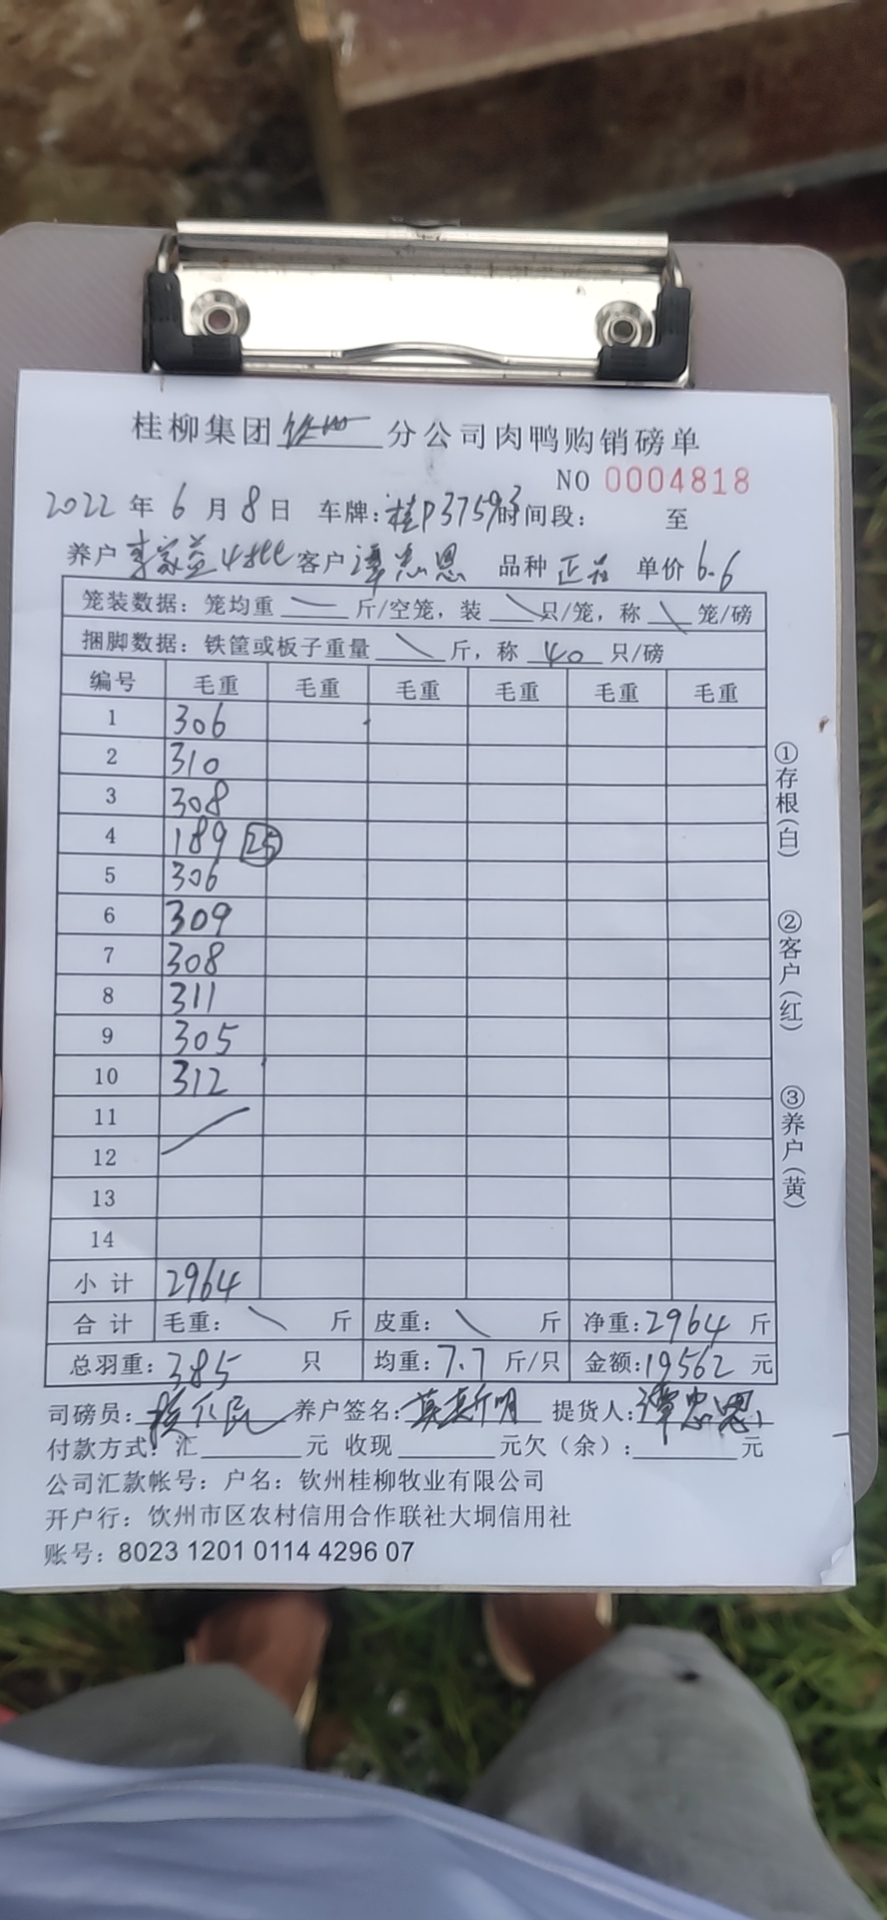 桂柳集团钦州分公司肉鸭购销磅单
NO 0004818
2022年6月8日 车牌:桂P37593时间段: 至
养户李家益4批客户谭忠恩 品种正品 单价6.6
笼装数据: 笼均重 斤/空笼, 装 只/笼, 称 笼/磅
捆脚数据: 铁筐或板子重量 斤, 称 40 只/磅
编号 毛重 毛重 毛重 毛重 毛重 毛重
1 306
2 310
3 308
4 189 25
5 306
6 309
7 308
8 311
9 305
10 312
11
12
13
14
小计 2964
合计 毛重: 斤 皮重: 斤 净重:2964 斤
总羽重:385 只 均重:7.7 斤/只 金额:19562 元
①存根(白)
②客户(红)
③养户(黄)
司磅员: 养户签名: 提货人:谭忠恩
付款方式: 汇 元 收现 元欠(余): 元
公司汇款帐号: 户名: 钦州桂柳牧业有限公司
开户行: 饮州市区农村信用合作联社大垌信用社
账号: 8023 1201 0114 4296 07